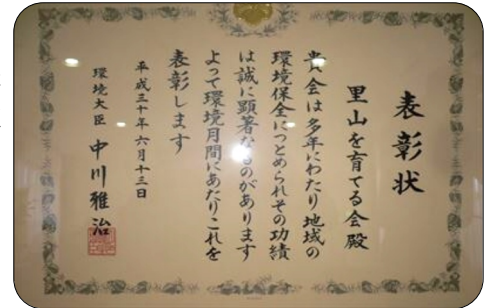 表彰状
里山を育てる会殿
貴会は多年にわたり地域の
環境保全につとめられその功績
は誠に顕著なものがあります
よって環境月間にあたりこれを
表彰します
平成三十年六月十三日
環境大臣 中川雅治